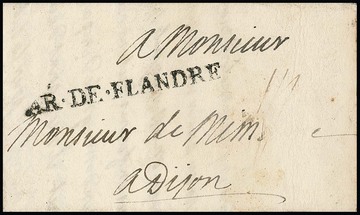 A Monsieur
AR·DE·FLANDRE
Monsieur de
A Dijon